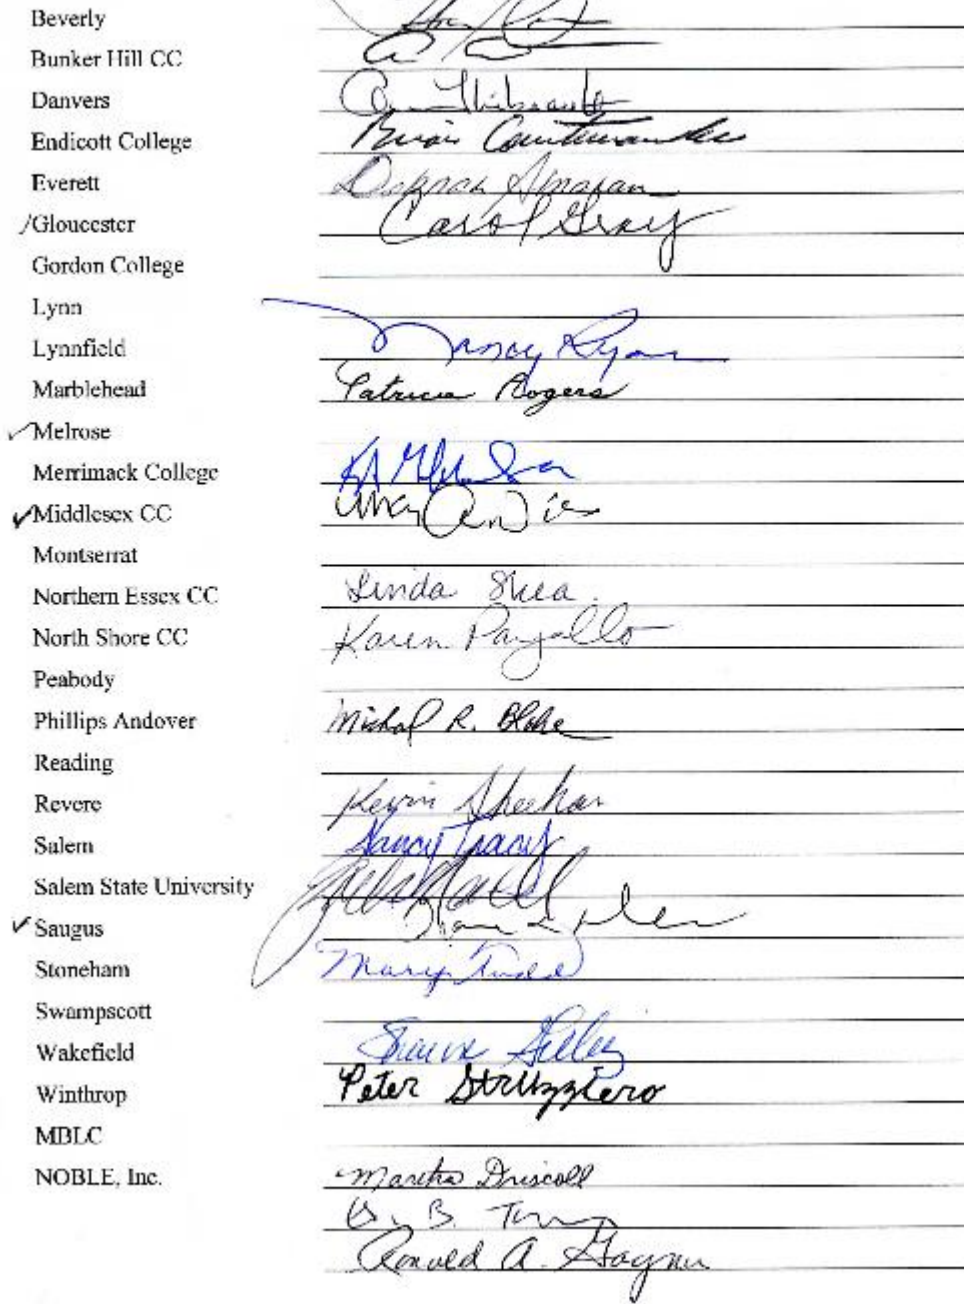 Beverly
Bunker Hill CC
Danvers Thibeault
Endicott College Brian Courtemanche
Everett Deborah Abraham
/Gloucester Carol Gray
Gordon College
Lynn
Lynnfield Nancy Ryan
Marblehead Patricia Rogers
✓Melrose
Merrimack College
✓Middlesex CC
Montserrat
Northern Essex CC Linda Shea
North Shore CC Karen Pangallo
Peabody
Phillips Andover Michael R. Blake
Reading
Revere Kevin Sheehan
Salem Nancy Tracy
Salem State University
✓Saugus
Stoneham Mary Todd
Swampscott
Wakefield
Winthrop Peter Struzziero
MBLC
NOBLE, Inc. Martha Driscoll
B.
Ronald A. Gagnon